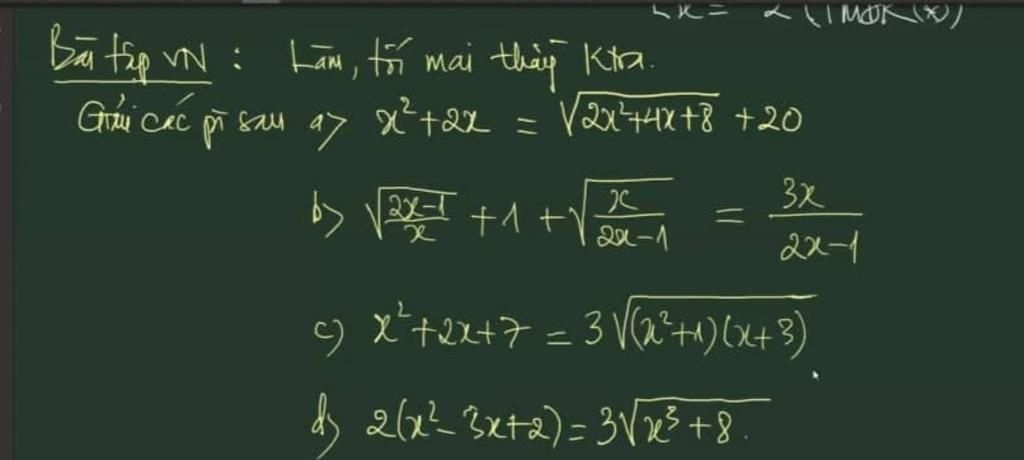 x = 2 (TMĐK(*))
Bài tập VN : Làm, tối mai thầy Ktra.
Giải các pt sau a> x²+2x = √(2x²+4x+8) + 20
b> √((2x-1)/x) + 1 + √(x/(2x-1)) = 3x/(2x-1)
c) x²+2x+7 = 3√((x²+1)(x+3))
d) 2(x²-3x+2) = 3√(x³+8).